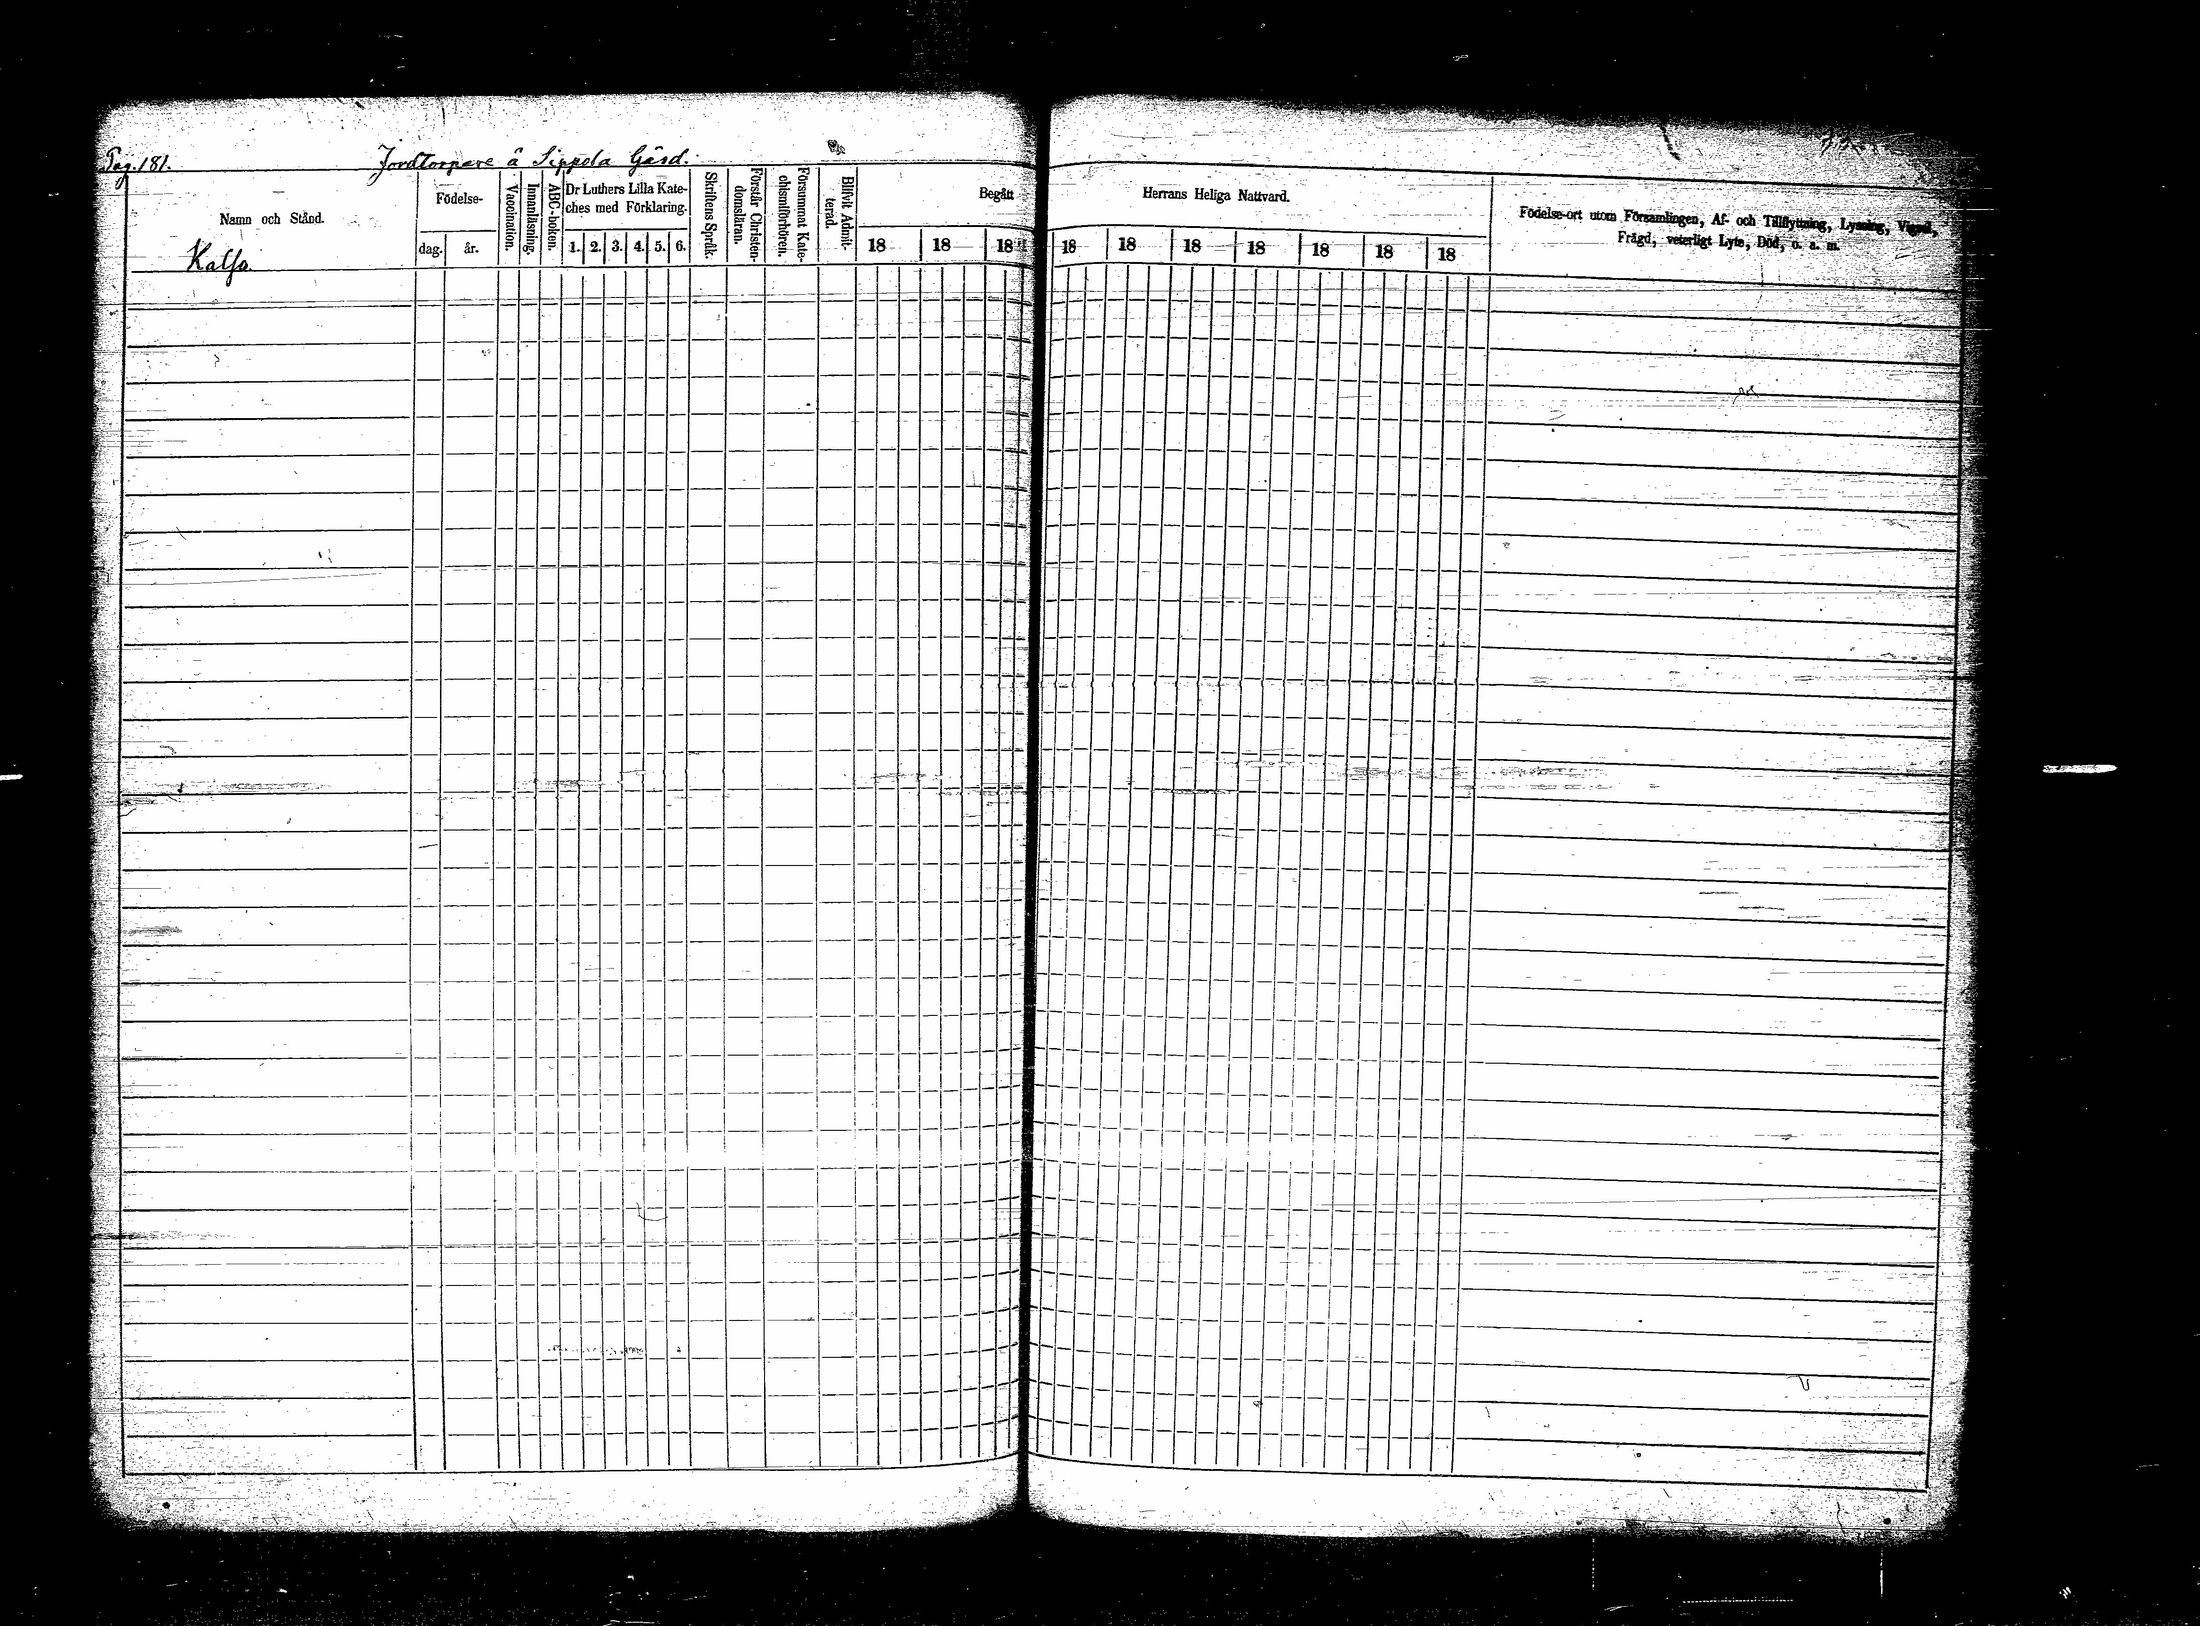 Pag. 181.
Jordtorpare å Sippola Gård.
Namn och Stånd.
Födelse-
dag. år.
Vaccination.
Innanläsning.
ABC-boken.
Dr Luthers Lilla Kate-
ches med Förklaring.
1. 2. 3. 4. 5. 6.
Skriftens Språk.
Förstår Christen-
domsläran.
Försummat Kate-
chismiförhören.
Blifvit Admit-
terad.
Begått Herrans Heliga Nattvard.
18 18 18 18 18 18 18 18 18 18
Födelse-ort utom Församlingen, Af- och Tillflyttning, Lysning, Vigsel,
Frägd, veterligt Lyte, Död, o. s. m.